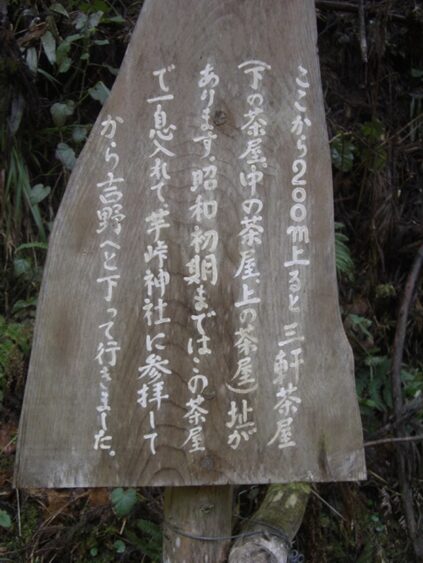 ここから200m上ると三軒茶屋
(下の茶屋、中の茶屋、上の茶屋)址が
あります。昭和初期まではこの茶屋
で一息入れて芋峠神社に参拝して
から吉野へと下って行きました。